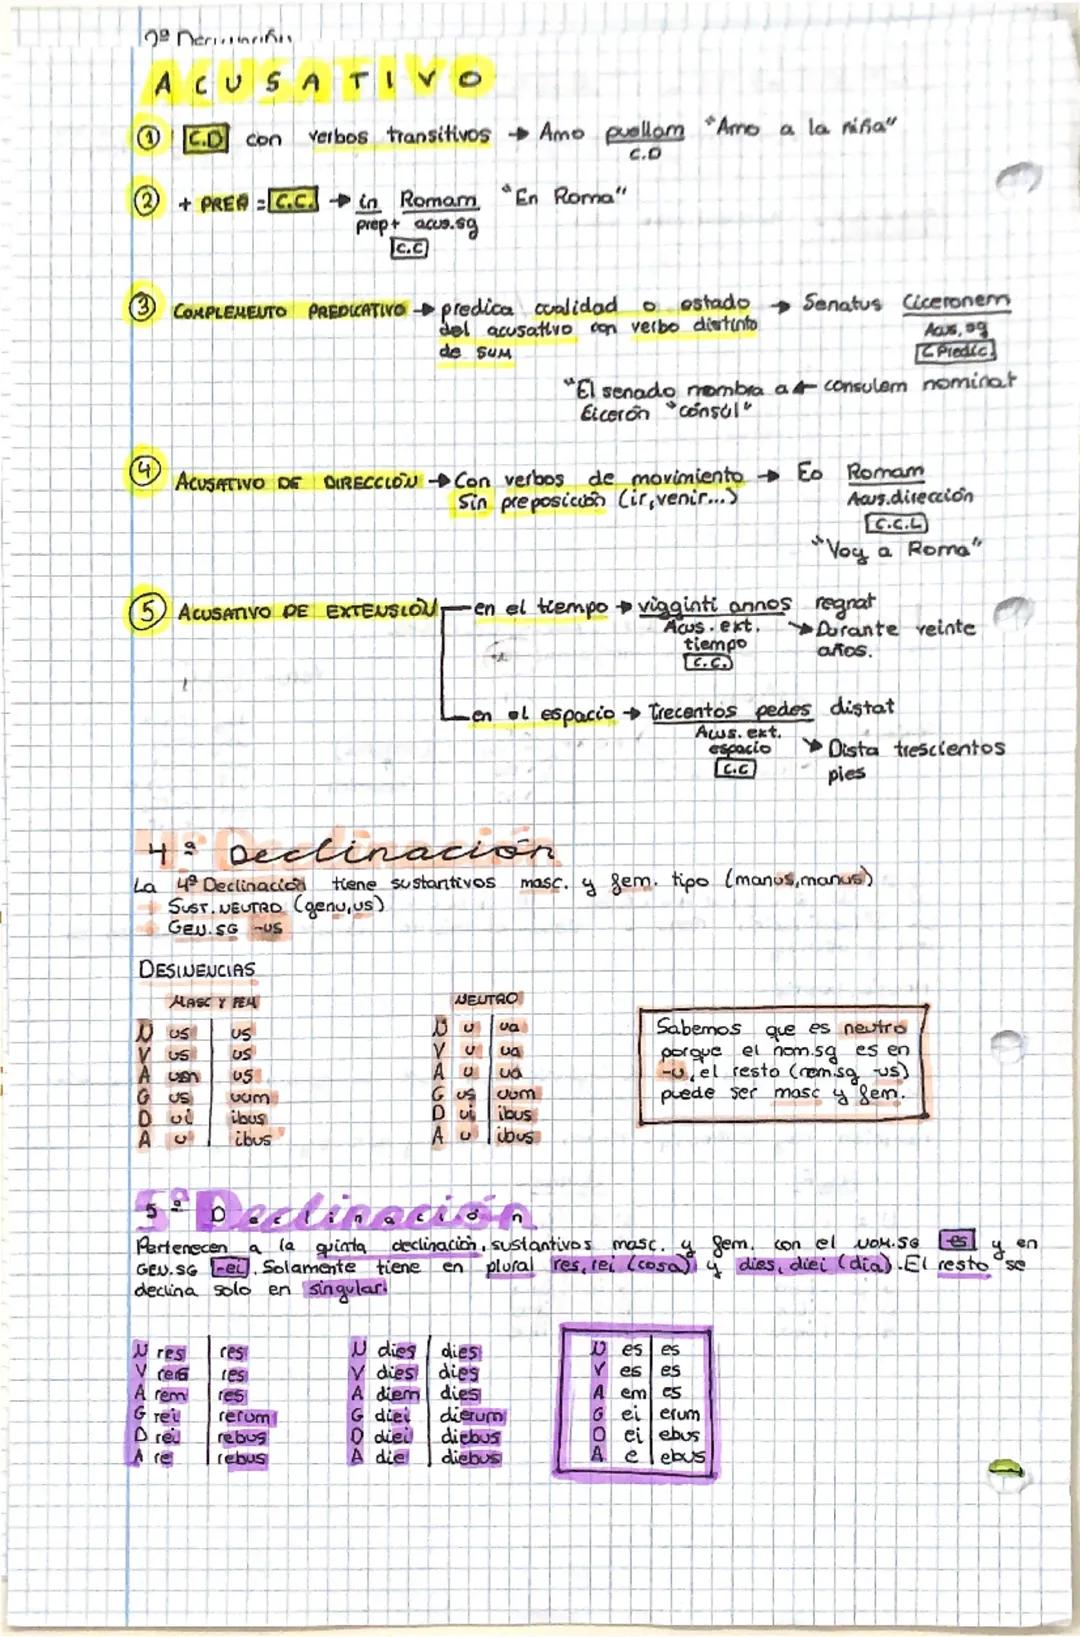 ACUSATIVO
① C.D con verbos transitivos → Amo puellam "Amo a la niña"
C.D
② + PREP = C.C. → in Romam "En Roma"
prep + acus.sg
C.C
③ COMPLEMENTO PREDICATIVO → predica cualidad o estado → Senatus Ciceronem
del acusativo con verbo distinto Acus, sg
de SUM C.Predic.
"El senado nombra a ← consulem nominat
Cicerón "cónsul"
④ ACUSATIVO DE DIRECCIÓN → Con verbos de movimiento → Eo Romam
Sin preposición (ir, venir...) Acus.dirección
C.C.L
"Voy a Roma"
⑤ ACUSATIVO DE EXTENSIÓN en el tiempo → vigginti annos regnat
Acus. ext. → Durante veinte
tiempo años.
C.C.
en el espacio → Trecentos pedes distat
Acus. ext.
espacio → Dista trescientos
C.C pies
4ª Declinación
La 4ª Declinación tiene sustantivos masc. y fem. tipo (manus, manus)
+ SUST. NEUTRO (genu, us)
GEN. SG -us
DESINENCIAS
MASC Y FEM NEUTRO
N us us N u ua
V us us V u ua
A um us A u ua
G us uum G us uum
D ui ibus D ui ibus
A u ibus A u ibus
Sabemos que es neutro
porque el nom.sg es en
-u, el resto (nom.sg -us)
puede ser masc y fem.
5ª Declinación
Pertenecen a la quinta declinación, sustantivos masc. y fem. con el NOM.SG -es y en
GEN. SG -ei. Solamente tiene en plural res, rei (cosa) y dies, diei (día). El resto se
declina solo en singular.
N res res N dies dies N es es
V res res V dies dies V es es
A rem res A diem dies A em es
G rei rerum G diei dierum G ei erum
D rei rebus D diei diebus D ei ebus
A re rebus A die diebus A e ebus